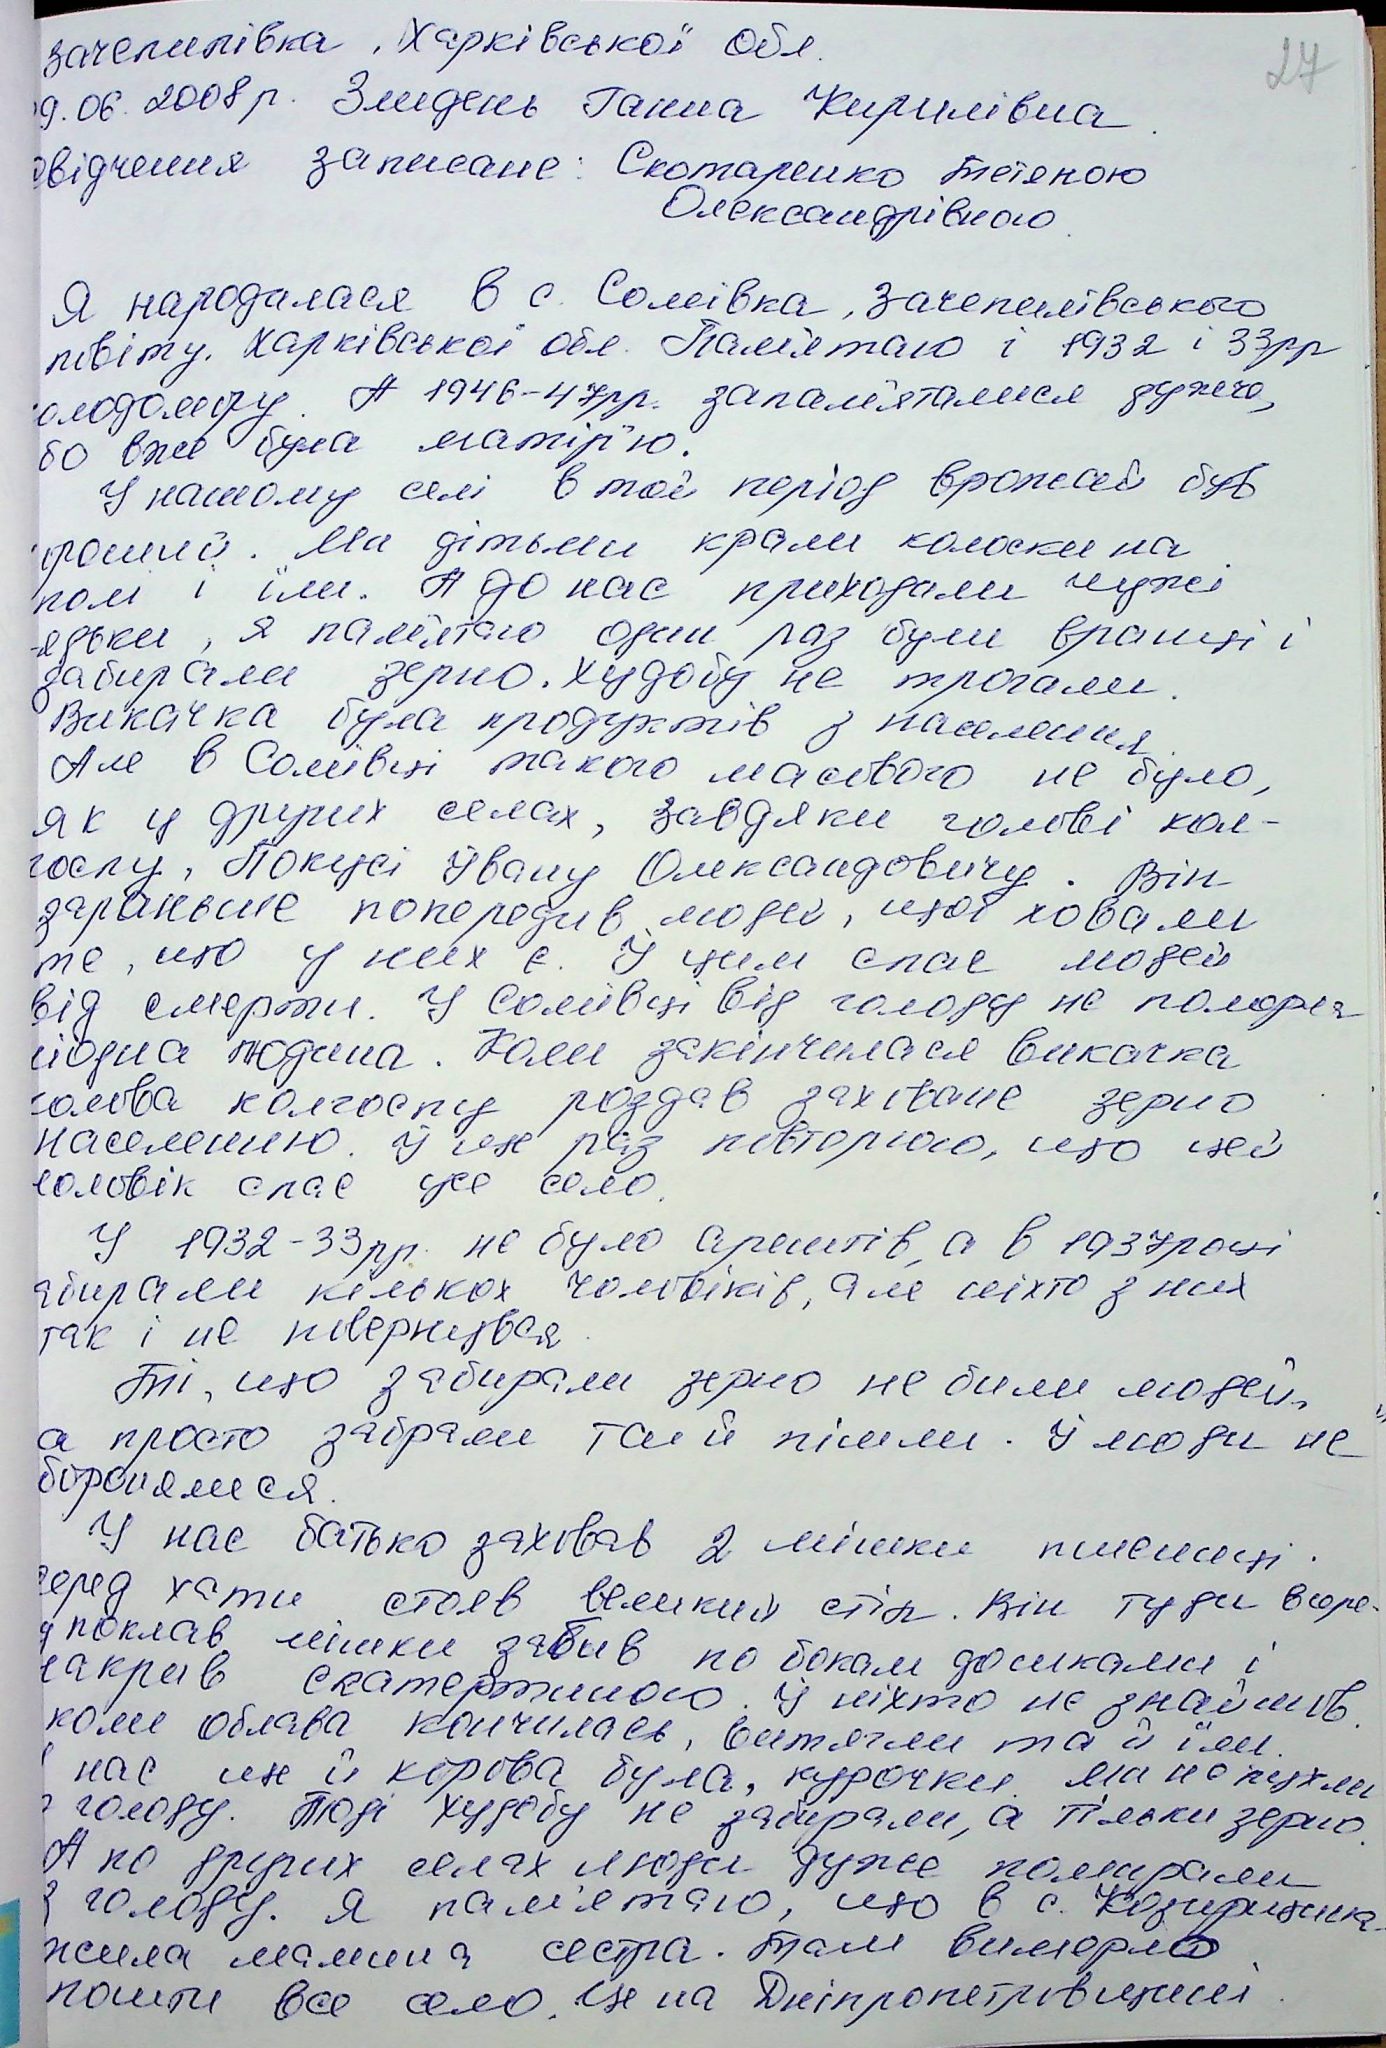 27
зачепилівка, Харківської обл.
9.06.2008р. Змидень Ганна Кирилівна.
відчення записане: Скотаренко Тетяною
Олександрівною.
Я народалася в с. Соміївка, Зачепилівського
повіту. Харківської обл. Пам'ятаю і 1932 і 33рр
олодомору. А 1946-47рр. запам'яталися дуже,
бо вже була матір'ю.
У нашому селі в той період врожай був
роший. Ми дітьми крали колоски на
полі і їли. А до нас приходали чужі
ядьки, я пам'ятаю один раз були вранці і
забирали зерно. Худобу не трогали.
Викачка була продуктів з населення.
Але в Соміївці такого масового не було,
як у других селах, завдяки голові кол-
госпу, Покусі Івану Олександовичу. Він
зараньше попередив людей, щоб ховали
те, що у них є. І цим спас людей
від смерти. У Соміївці від голоду не померла
іодна людина. Коли закінчилася викачка
голова колгоспу роздав заховане зерно
населенню. І ще раз повторюю, що цей
чоловік спас усе село.
У 1932-33рр. не було арештів, а в 1937році
абирали кількох чоловіків, але ніхто з них
так і не повернувся.
Ті, що забирали зерно не били людей,
а просто забрали та й пішли. І люди не
боронялися.
У нас батько заховав 2 мішки пшениці.
серед хати стояв великий стіл. Він туди
поклав мішки забив по бокам дошками і
накрив скатертиною. І ніхто не знайшов.
коли облава кончилась, витягли та й їли.
нас ще й корова була, курочки. Ми не пухли
з голоду. Тоді худобу не забирали, а тільки зерно.
А по других селах люди дуже помирали
з голоду. Я пам'ятаю, що в с. Козирщина
жила мамина сестра. Там вимерло
пошти все село. Це на Дніпропетровщині.